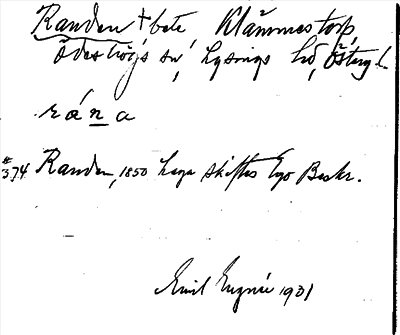 Randen + bete, Klämmestorp,
Ödeshögs sn, Lysings hd, Östergl.
rána
#374 Randen, 1850 Laga skiftes Ego Beskr.
Emil 1931